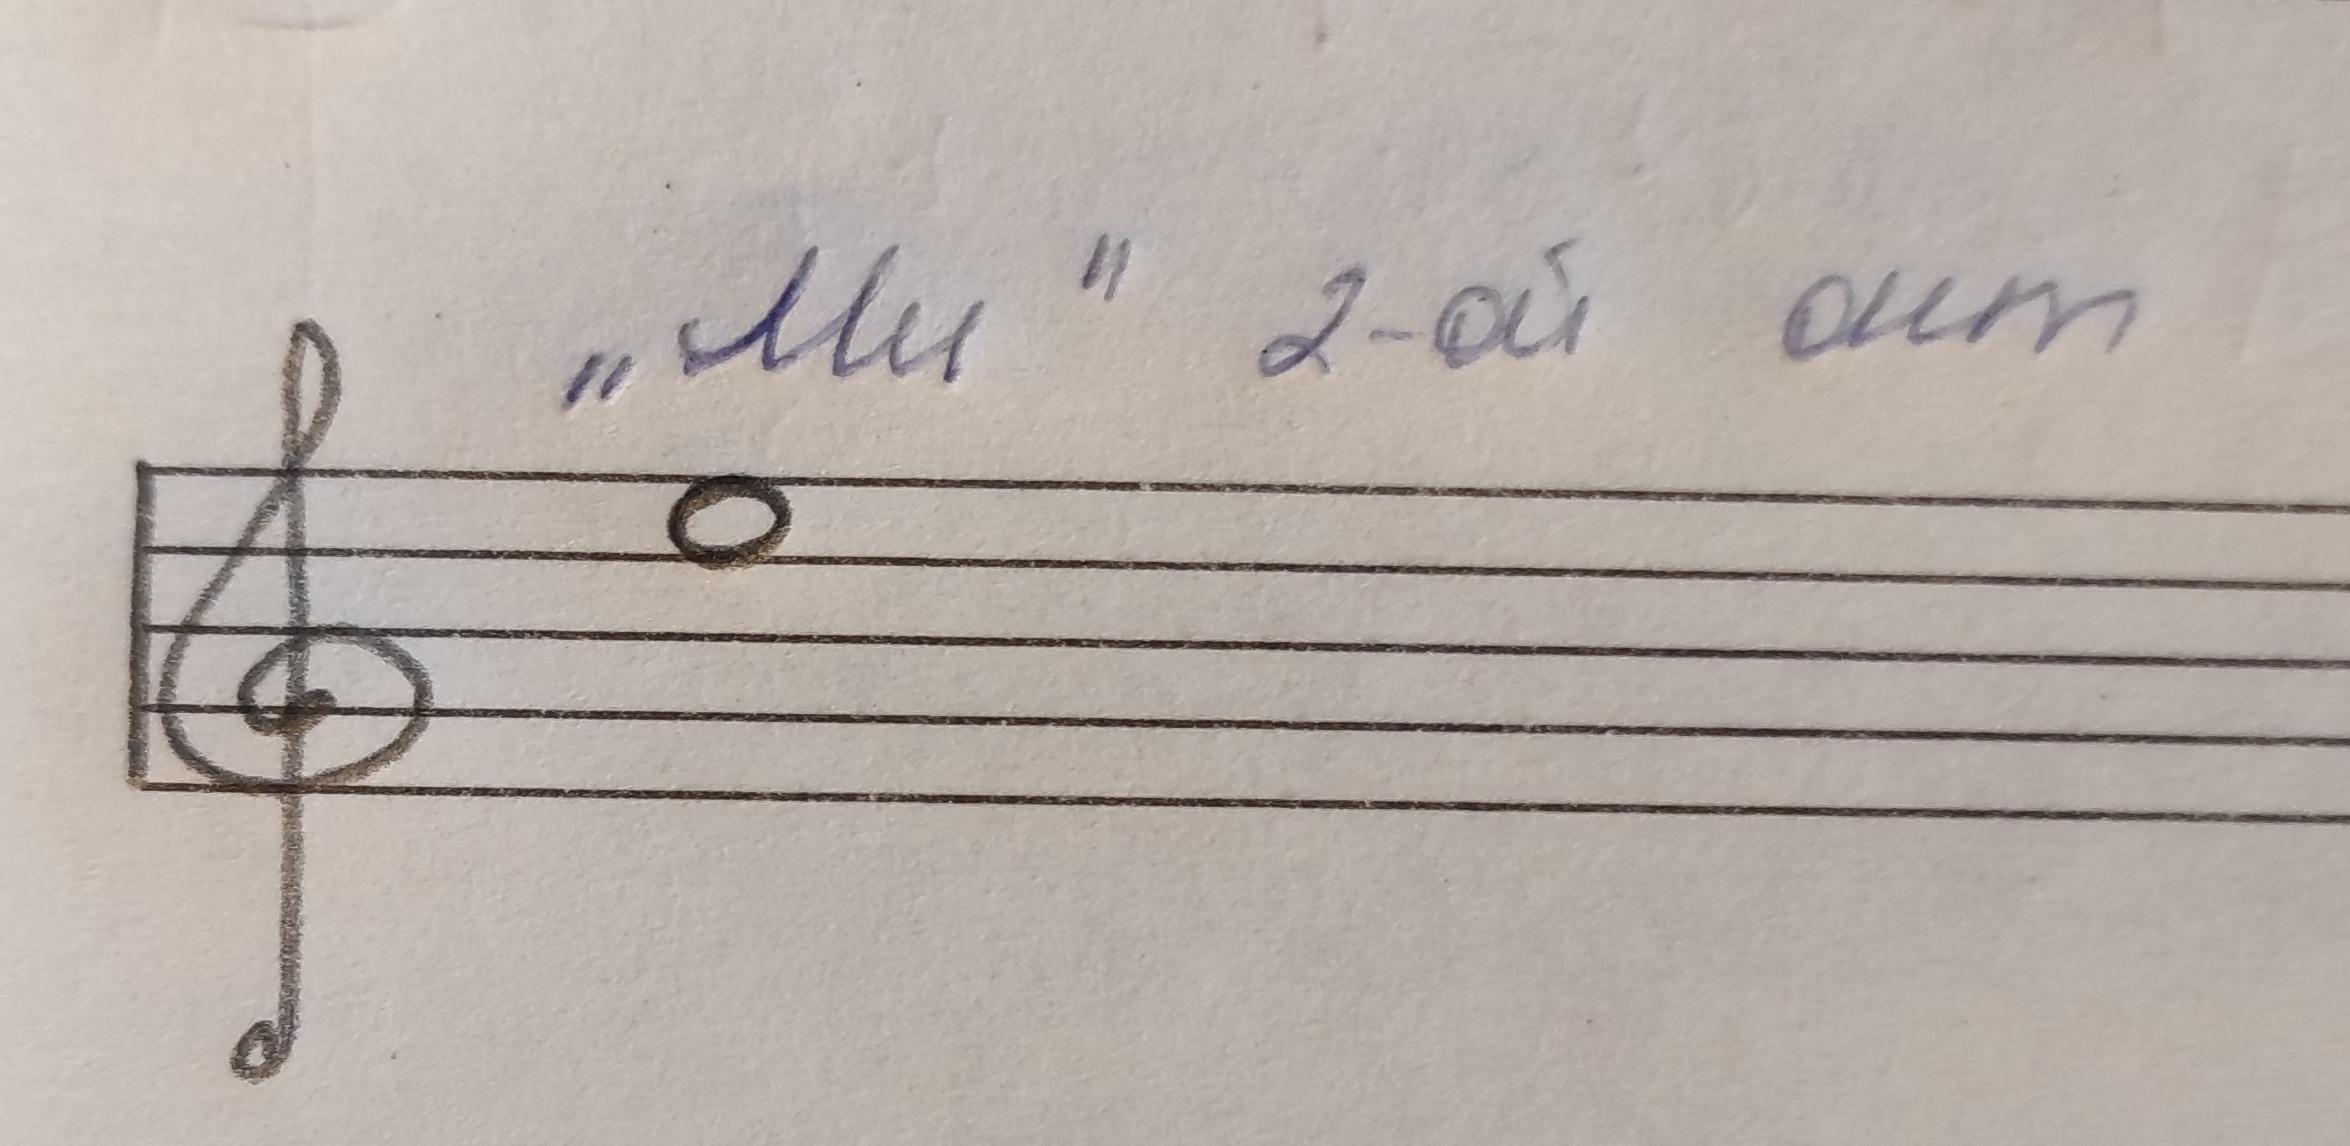 „Ми" 2-ой окт